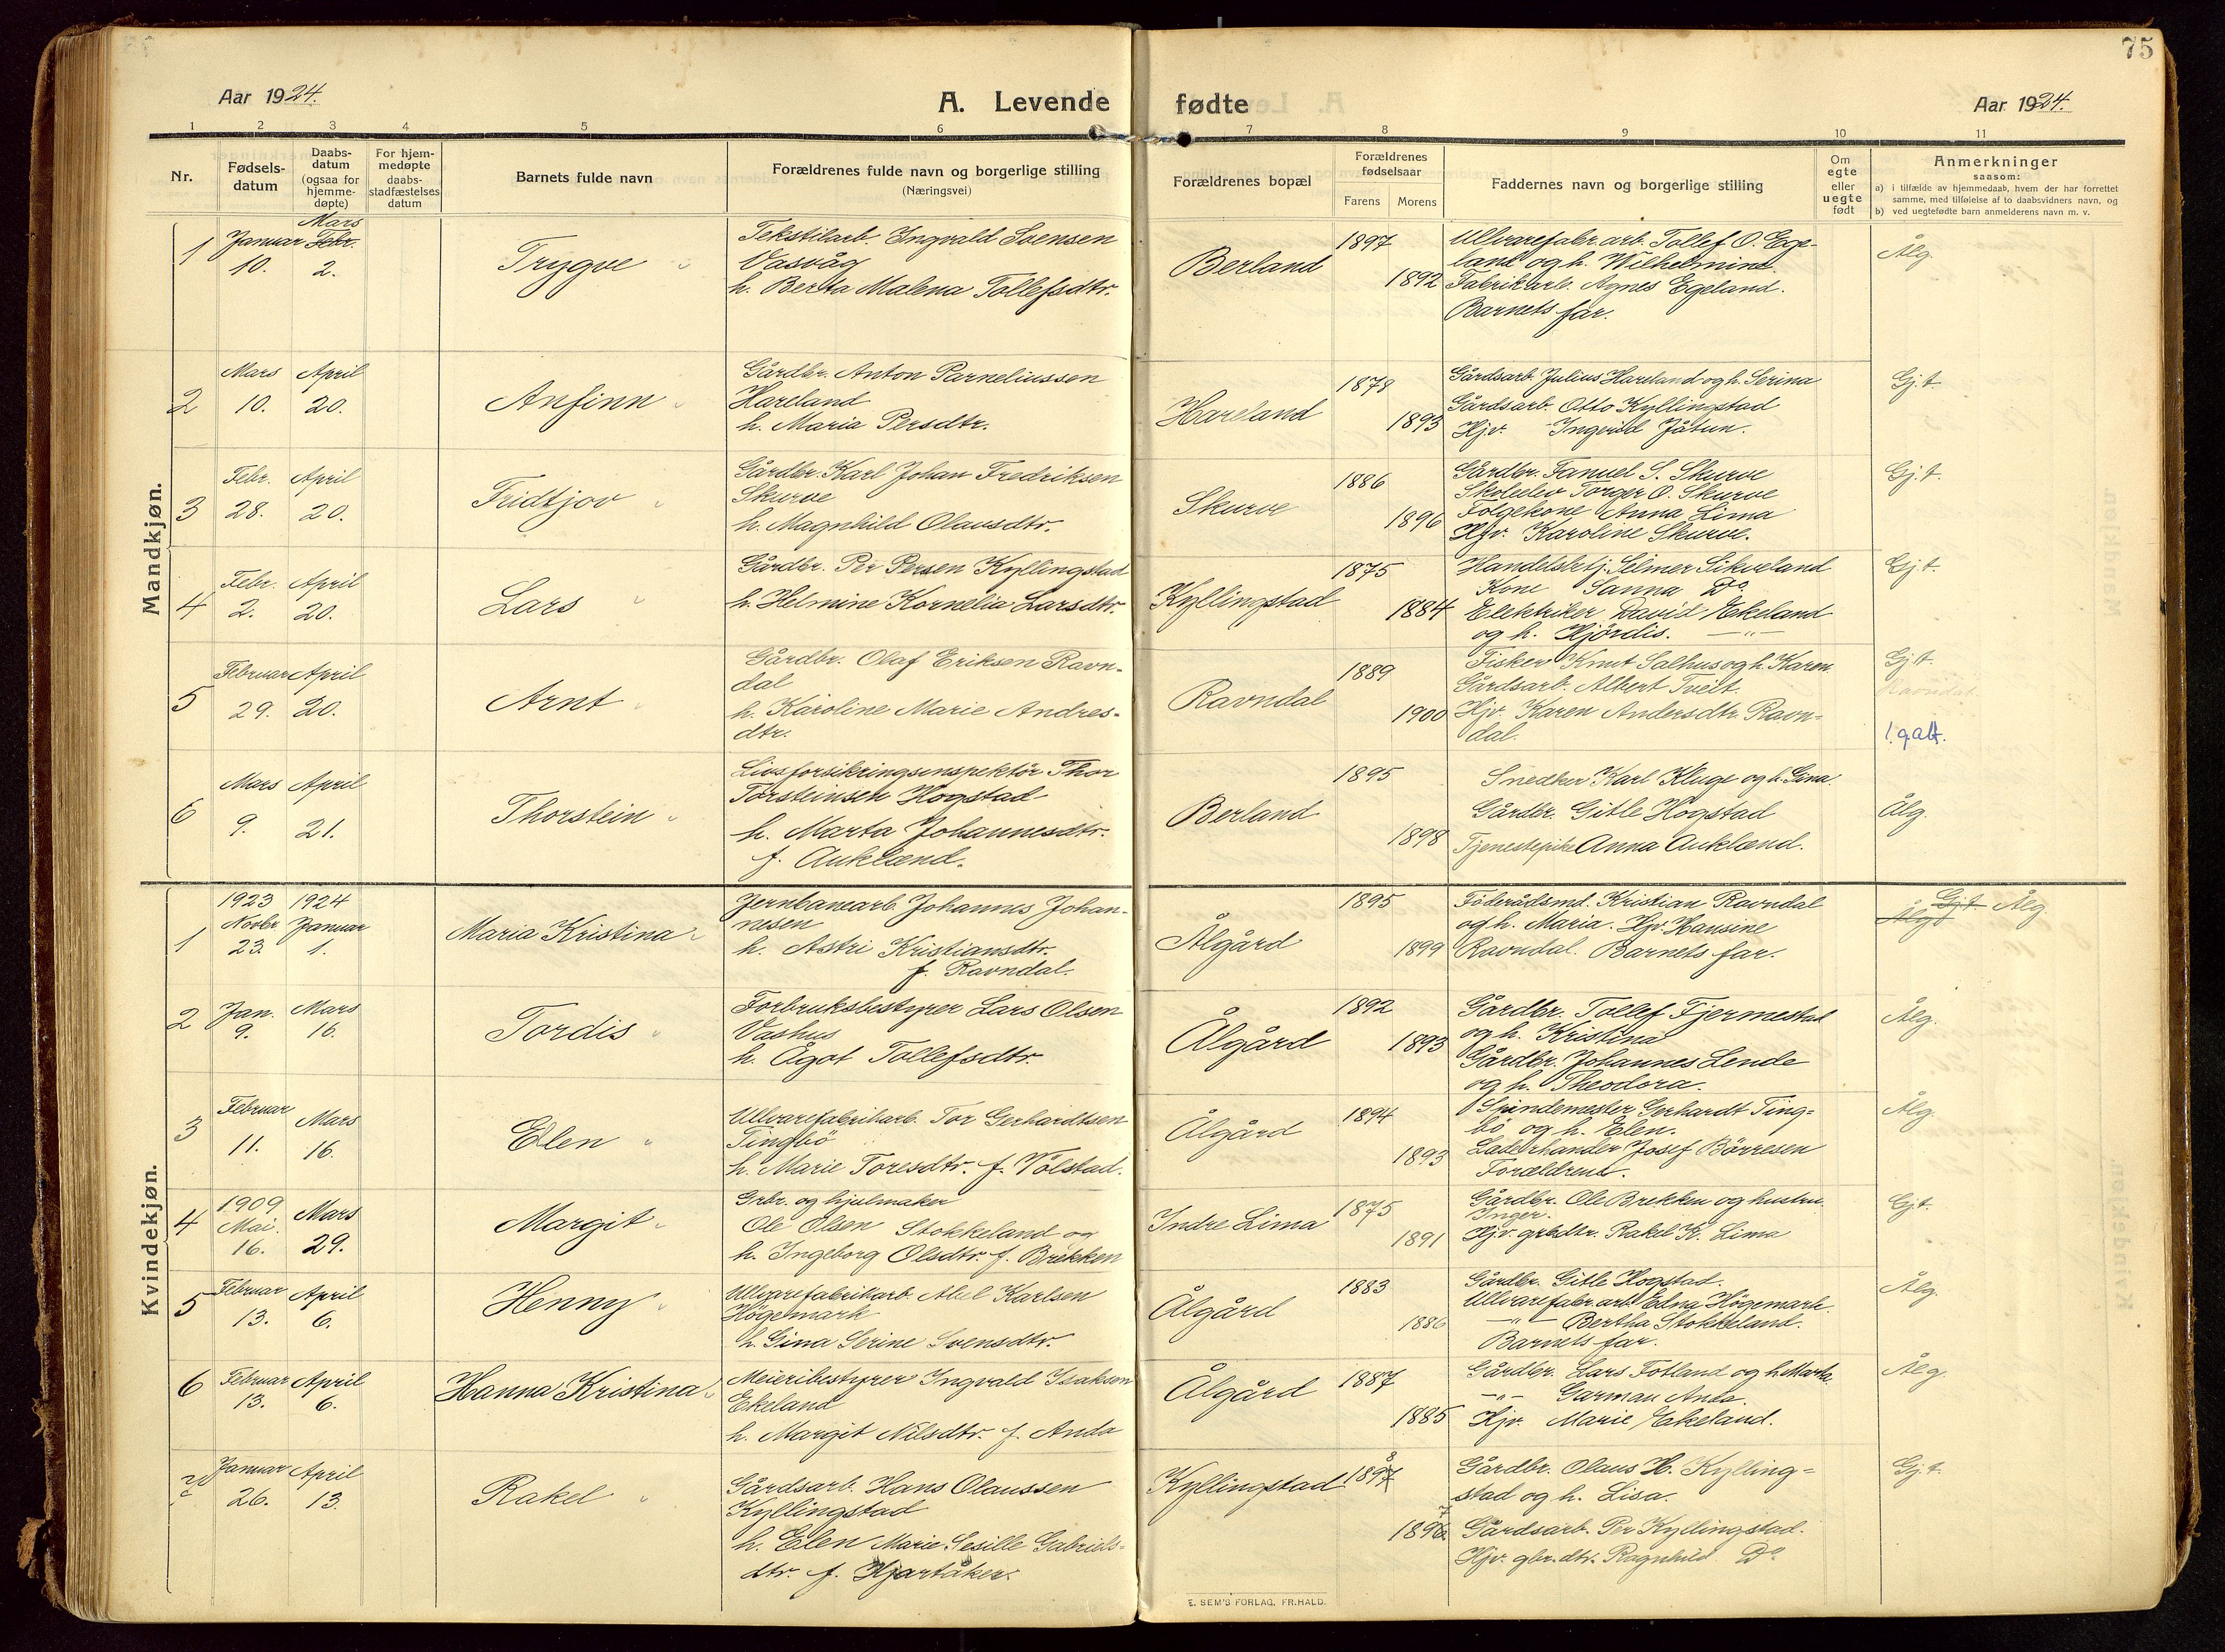 75
Aar 1924.
A. Levende fødte
Aar 1924.
1 2 3 4 5 6 7 8 9 10 11
Nr.
Fødsels-
datum
Daabs-
datum
(ogsaa for
hjemme-
døpte)
For hjem-
medøpte
daabs-
stadfæstelses
datum
Barnets fulde navn
Forældrenes fulde navn og borgerlige stilling
(Næringsvei)
Forældrenes bopæl
Forældrenes
fødselsaar
Farens Morens
Faddernes navn og borgerlige stilling
Om
egte
eller
uegte
født
Anmerkninger
saasom:
a) i tilfælde av hjemmedaab, hvem der har forrettet
samme, med tilføielse af to daabsvidners navn, og
b) ved uegtefødte barn anmelderens navn m. v.
Mandkjøn.
1
Januar
10.
Mars
Febr.
2.
Trygve
Tekstilarb. Ingvald Svensen
Vasvåg
h. Berta Malena Tollefsdtr.
Berland
1897
1892
Ullvarefabr.arb. Tollef O. Ege-
land og h. Wilhelmine.
Fabrikarb. Agnes Egeland.
Barnets far.
Ålg.
2
Mars
10.
April
20.
Anfinn
Gårdbr. Anton Parneliussen
Hareland
h. Maria Persdtr.
Hareland
1878
1893
Gårdsarb. Julius Hareland og h. Serina
Gårdsarb. Otto Kyllingstad
Hjv. Ingvild Jåtun.
Gj.t.
3
Febr.
28.
April
20.
Fridtjov
Gårdbr. Karl Johan Fredriksen
Skurve
h. Magnhild Olausdtr.
Skurve
1886
1896
Gårdbr. Fanuel S. Skurve
Skoleelev Torger O. Skurve
Folgekone Anna Lima
Hjv. Karoline Skurve.
Gj.t.
4
Febr.
2.
April
20.
Lars
Gårdbr. Per Persen Kyllingstad
h. Helmine Kornelia Larsdtr.
Kyllingstad
1875
1884
Handelsbetj. Selmer Sikveland
Kone Sanna Do
Elektriker David Ekeland
og h. Hjördis. —"—
Gj.t.
5
Februar
29.
April
20.
Arnt
Gårdbr. Olaf Eriksen Ravn-
dal
h. Karoline Marie Andres-
dtr.
Ravndal
1889
1900
Fisker Knut Salhus og h. Karen
Gårdsarb. Albert Tveit.
Hjv. Karen Andersdtr. Ravn-
dal.
Gj.t.
Ravndal.
1. g. alt.
6
Mars
9.
April
21.
Thorstein
Livsforsikringsinspektör Thor
Torsteinsen Hogstad
h. Marta Johannesdtr.
f. Aukland.
Berland
1895
1898
Snedker Karl Kluge og h. Gina.
Gårdbr. Gitle Hogstad
Tjenestepike Anna Aukland.
Ålg.
Kvindekjøn.
1
1923
Novbr.
23.
1924
Januar
1.
Maria Kristina
Jernbanearb. Johannes Johan-
nesen
h. Astri Kristiansdtr.
f. Ravndal.
Ålgård
1895
1899
Föderådsmd. Kristian Ravndal
og h. Maria. Hjv. Hansine
Ravndal. Barnets far.
Ålg. Gj.t. Ålg.
2
Jan.
9.
Mars
16.
Tordis
Forbruksbestyrer Lars Olsen
Vashus
h. Ågot Tollefsdtr.
Ålgård
1892
1893
Gårdbr. Tollef Fjermestad
og h. Kristina
Gårdbr. Johannes Lende
og h. Theodora.
Ålg.
3
Februar
11.
Mars
16.
Elen
Ullvarefabrikarb. Tor Gerhardtsen
Tingbö
h. Marie Toresdtr. f. Tölstad.
Ålgård
1894
1893
Spindemester Gerhardt Ting=
bö og h. Elen.
Laderhandler Josef Börresen
Forældrene.
Ålg.
4
1909
Mai.
16.
Mars
29.
Margit
Grbr. og hjulmaker
Ole Olsen Stokkeland og
h. Ingeborg Olsdtr. f. Brekken
Indre Lima
1875
1891
Gårdbr. Ole Brekken og hustru
Inger.
Hjv. grbdtr. Rakel K. Lima
Gj.t.
5
Februar
13.
April
6.
Henny
Ullvarefabrikarb. Abel Karlsen
Högemark
h. Gina Serine Svensdtr.
Ålgård
1883
1886
Gårdbr. Gitle Hogstad.
Ullvarefabr.arb. Edna Högemark.
—"— Bertha Stokkeland.
Barnets far.
Ålg.
6
Februar
13.
April
6.
Hanna Kristina
Meieribestyrer Ingvald Isaksen
Ekeland
h. Margit Nilsdtr. f. Anda
Ålgård
1887
1885
Gårdbr. Lars Fotland og h. Marta.
—"— Garman Anda.
Hjv. Marie Ekeland.
Ålg.
7
Januar
26.
April
13
Rakel
Gårdsarb. Hans Olaussen
Kyllingstad
h. Elen Marie Sesille Gabriels-
dtr. f. Hjartåker.
Kyllingstad
1897
8
1896.
7
Gårdbr. Olaus H. Kylling=
stad og h. Lisa.
Gårdsarb. Per Kyllingstad.
Hjv. gbr.dtr. Ragnhild Do.
Gj.t.
E. SEM'S FORLAG, FR.HALD.